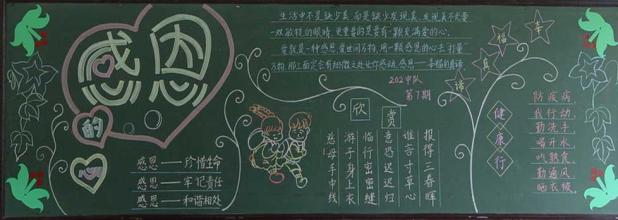 感恩
的
心
感恩——珍惜生命
感恩——牢记责任
感恩——和谐相处
生活中不是缺少美，而是缺少发现美，发现美不光要
一双敏锐的眼睛，更重要的是要有一颗发满爱心的心，
爱就是一种感恩，爱世间万物，用一颗感恩的心去打量
202中队
第7期
欣赏
慈母手中线
游子身上衣
临行密密缝
意恐迟迟归
谁言寸草心
报得三春晖
幸福真谛
健康行
防疾病
我行动
勤洗手
喝开水
吃熟食
勤通风
晒衣被